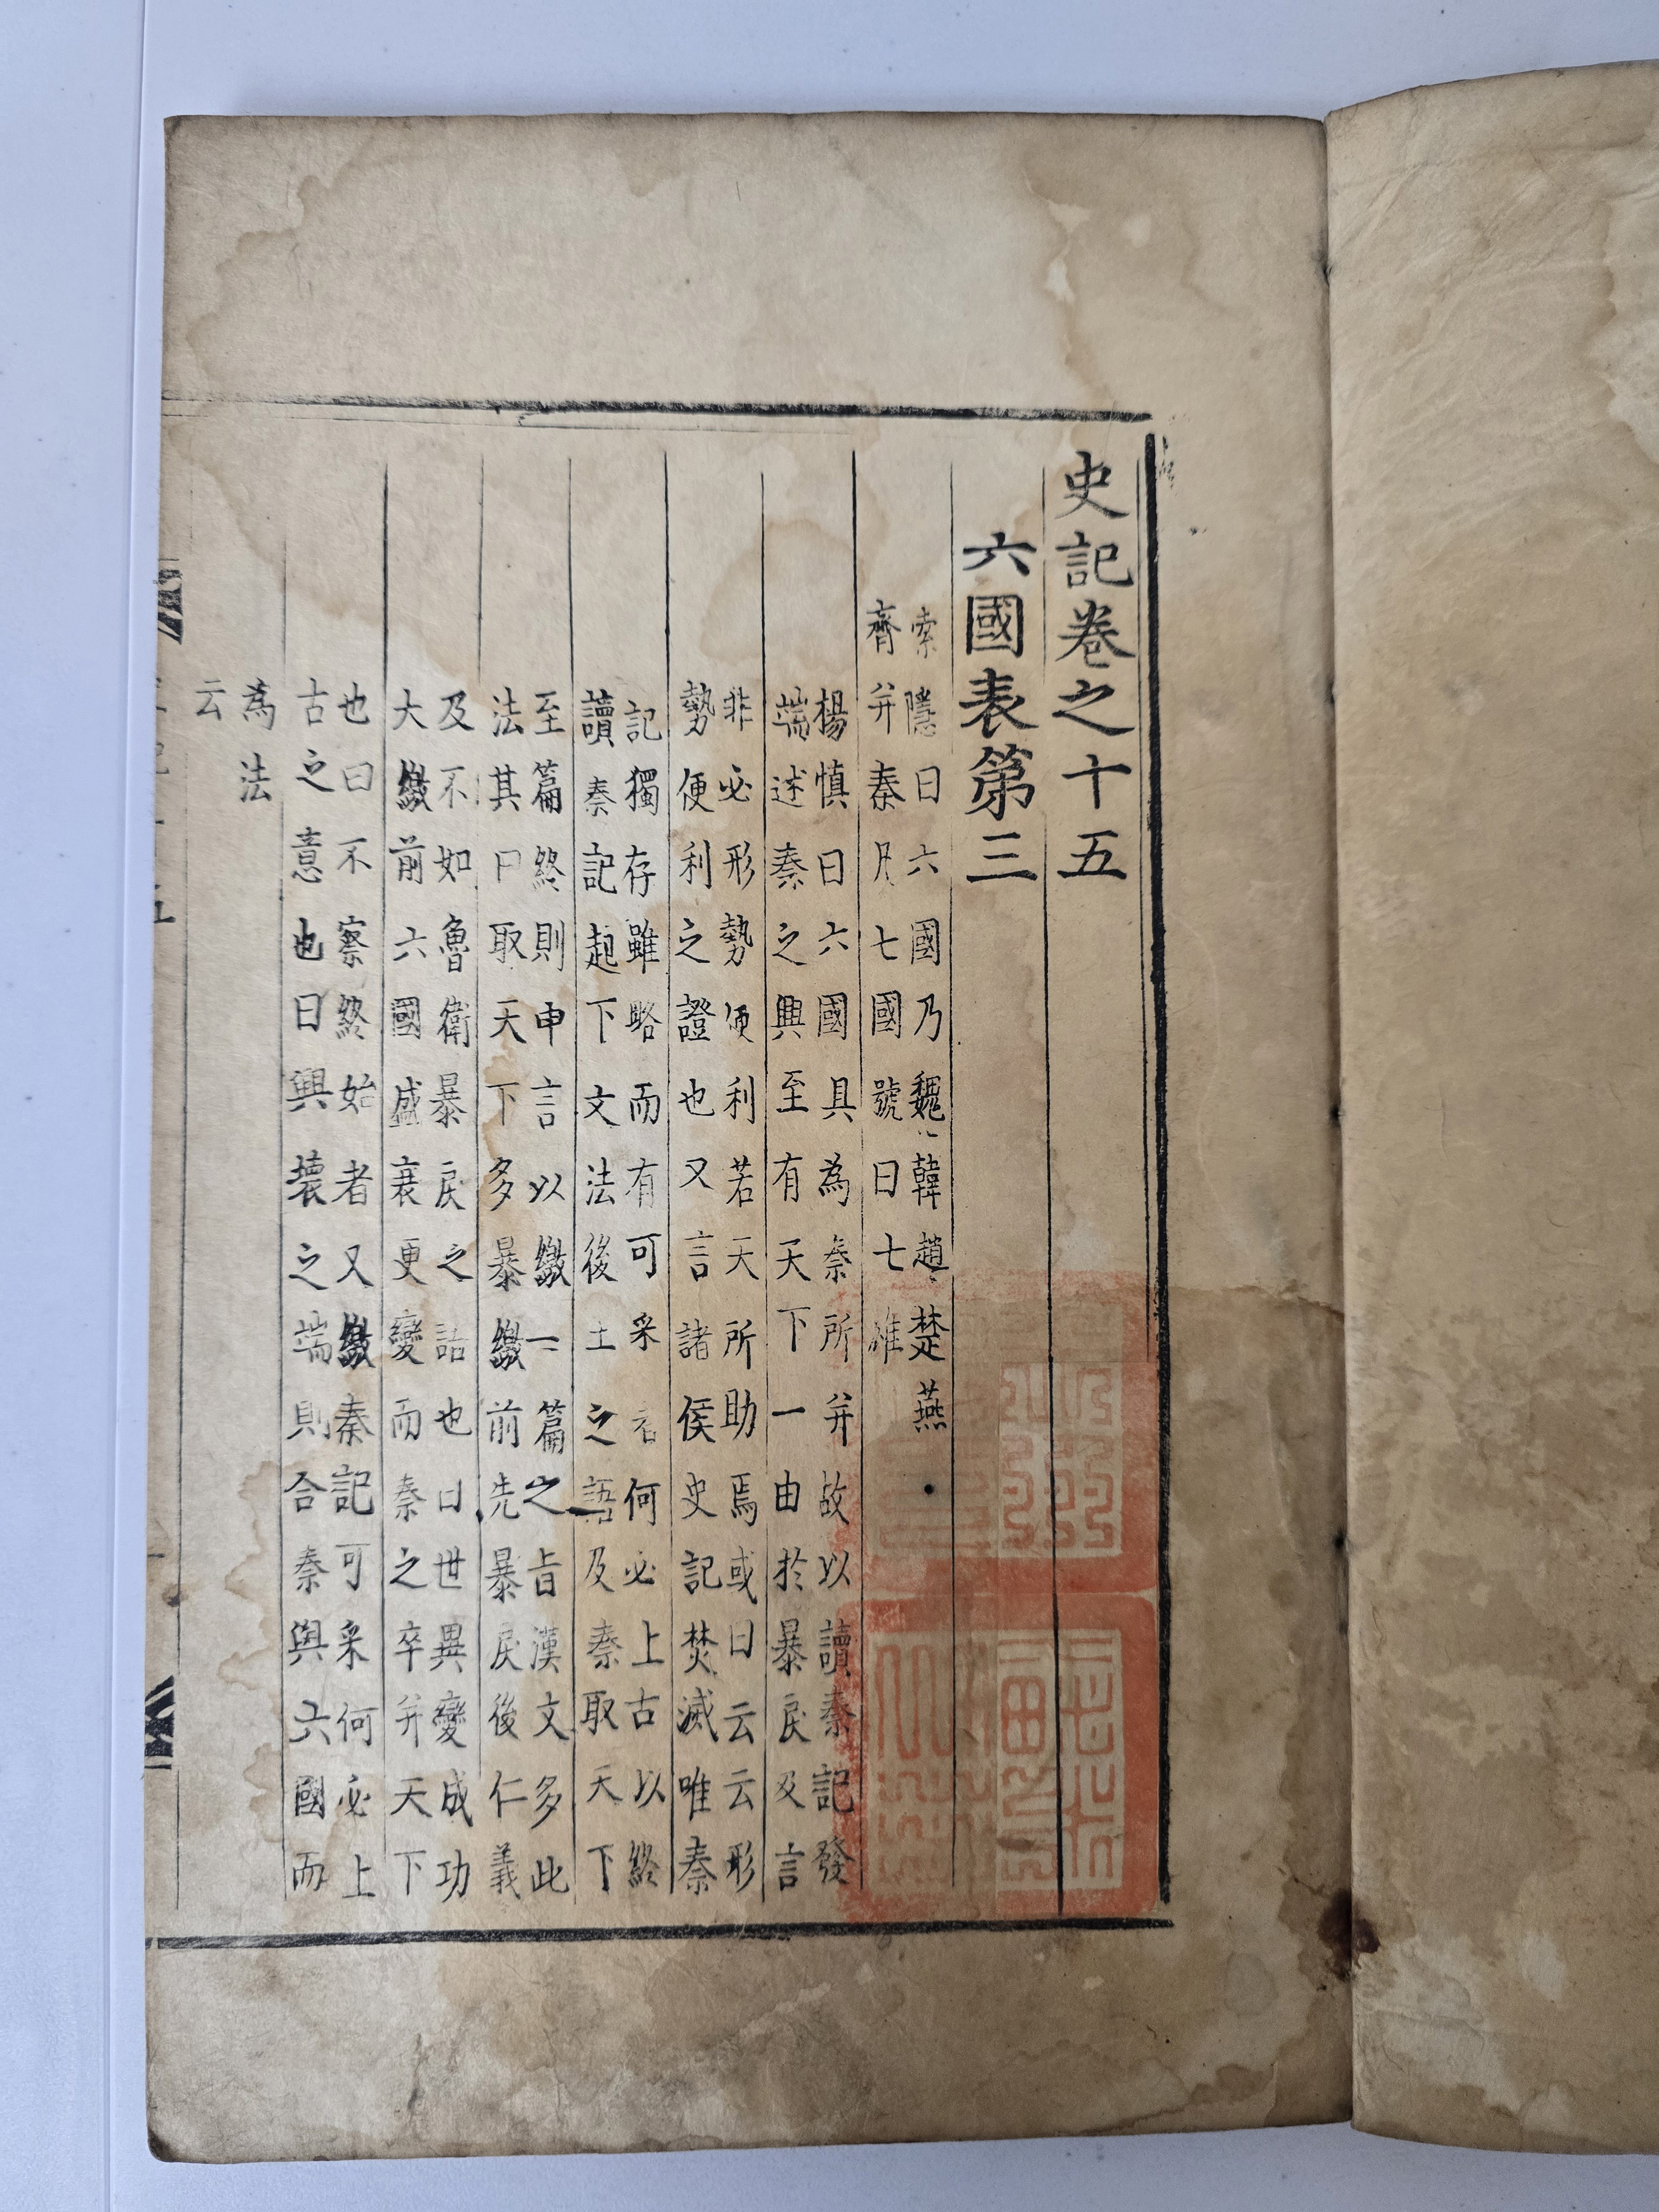 史記卷之十五
六國表第三
索隱曰六國乃魏韓趙楚燕
齊并秦凡七國號曰七雄
楊慎曰六國具為秦所并故以讀秦記發
端述秦之興至有天下一由於暴戾及言
非必形勢便利若天所助焉或曰云云形
勢便利之證也又言諸侯史記焚滅唯秦
記獨存雖略而有可采者何必上古以終
讀秦記起下文法後王之語及秦取天下
至篇終則申言以繳一篇之旨漢文多此
法其曰取天下多暴繳前先暴戾後仁義
及不如魯衛暴戾之語也曰世異變成功
大繳前六國盛衰更變而秦之卒并天下
也曰不察終始者又繳秦記可采何必上
古之意也曰興壞之端則合秦與六國而
為法
云